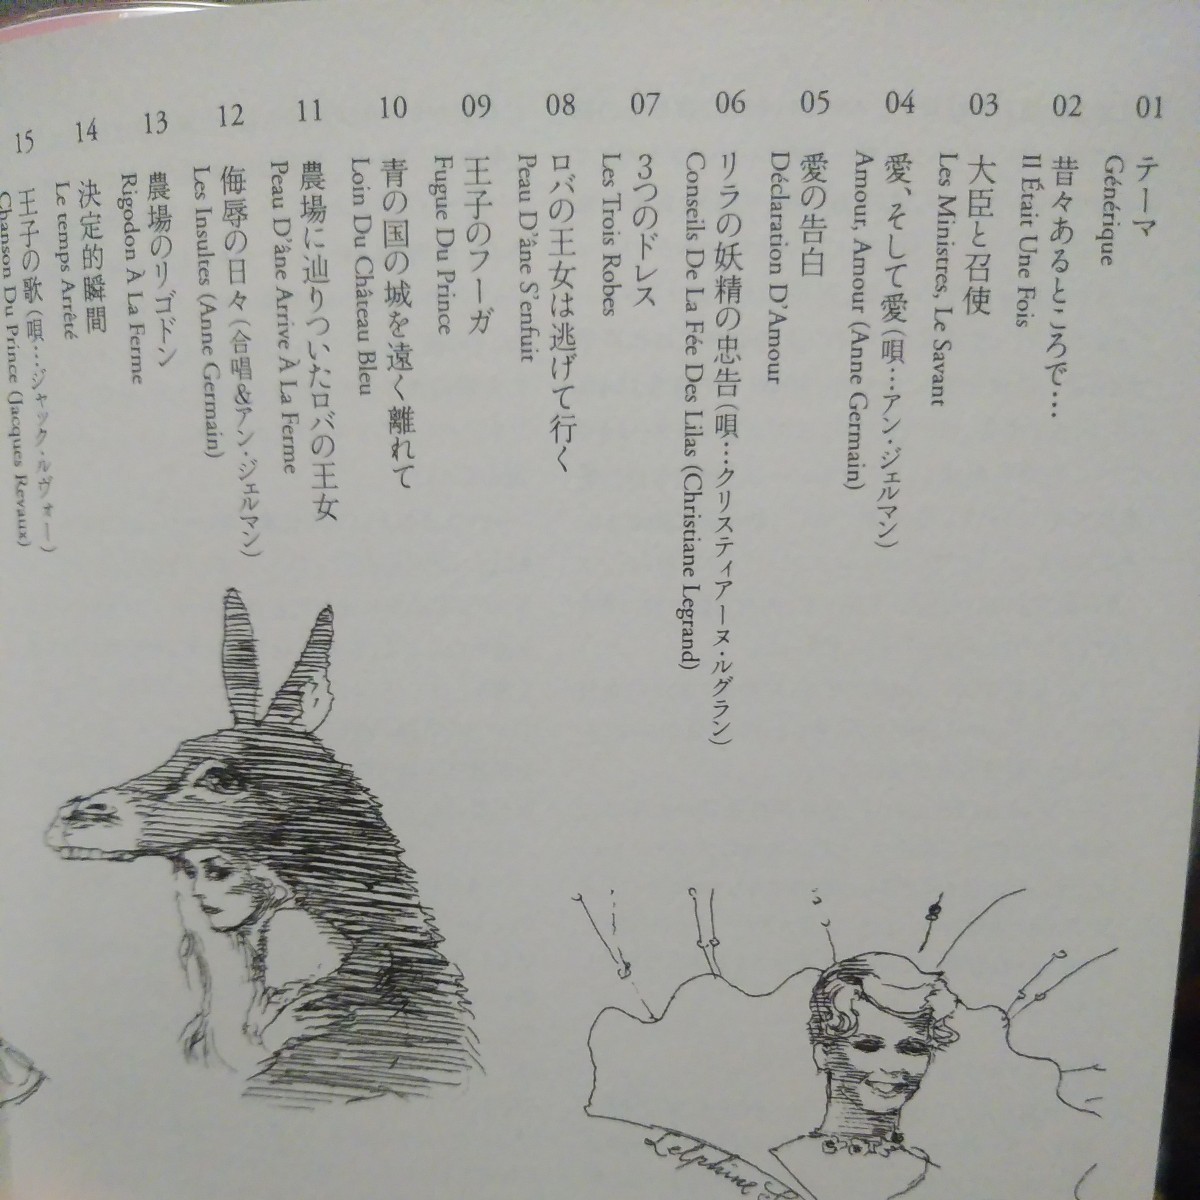 01
テーマ
Générique
02
昔々あるところで…
Il Était Une Fois
03
大臣と召使
Les Ministres, Le Savant
04
愛、そして愛(唄…アン・ジェルマン)
Amour, Amour (Anne Germain)
05
愛の告白
Déclaration D'Amour
06
リラの妖精の忠告(唄…クリスティアーヌ・ルグラン)
Conseils De La Fée Des Lilas (Christiane Legrand)
07
3つのドレス
Les Trois Robes
08
ロバの王女は逃げて行く
Peau D'âne S'enfuit
09
王子のフーガ
Fugue Du Prince
10
青の国の城を遠く離れて
Loin Du Château Bleu
11
農場に辿りついたロバの王女
Peau D'âne Arrive À La Ferme
12
侮辱の日々(合唱&アン・ジェルマン)
Les Insultes (Anne Germain)
13
農場のリゴドン
Rigodon À La Ferme
14
決定的瞬間
Le temps Arrêté
15
王子の歌(唄…ジャック・ルヴォー)
Chanson Du Prince (Jacques Revaux)
Delphine